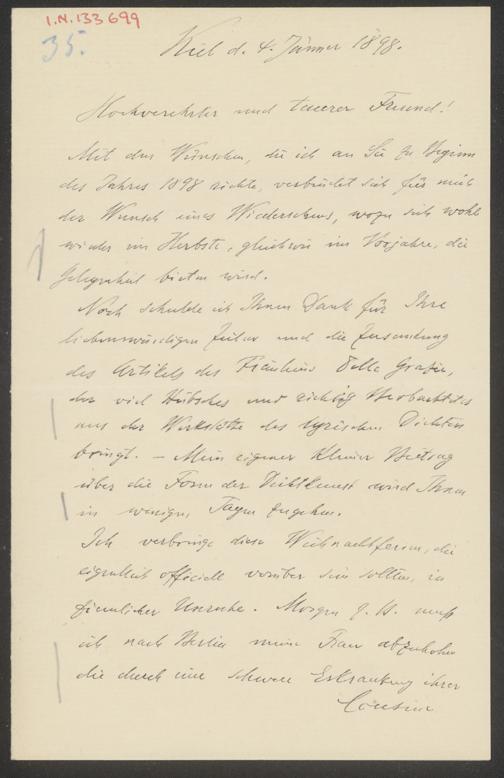 I.N. 133699
35.
Kiel d. 4. Jänner 1898.
Hochverehrter und teuerer Freund!
Mit den Wünschen, die ich an Sie zu Beginn
des Jahres 1898 richte, verbindet sich für mich
der Wunsch eines Wiedersehens, wozu sich wohl
wieder im Herbste, gleichwie im Vorjahre, die
Gelegenheit bieten wird.
Noch schulde ich Ihnen Dank für Ihre
liebenswürdigen Zeilen und die Zusendung
des Artikels des Fräuleins Delle Grazie,
der viel Hübsches und richtig Beobachtetes
aus der Werkstätte des lyrischen Dichters
bringt. — Mein eigener kleiner Beitrag
über die Form der Dichtkunst wird Ihnen
in wenigen Tagen zugehen.
Ich verbringe diese Weihnachtsferien, die
eigentlich officiell vorüber sein sollten, in
ziemlicher Unruhe. Morgen muß
ich nach Berlin meine Frau abzuholen
die durch eine schwere Erkrankung ihrer
Cousine